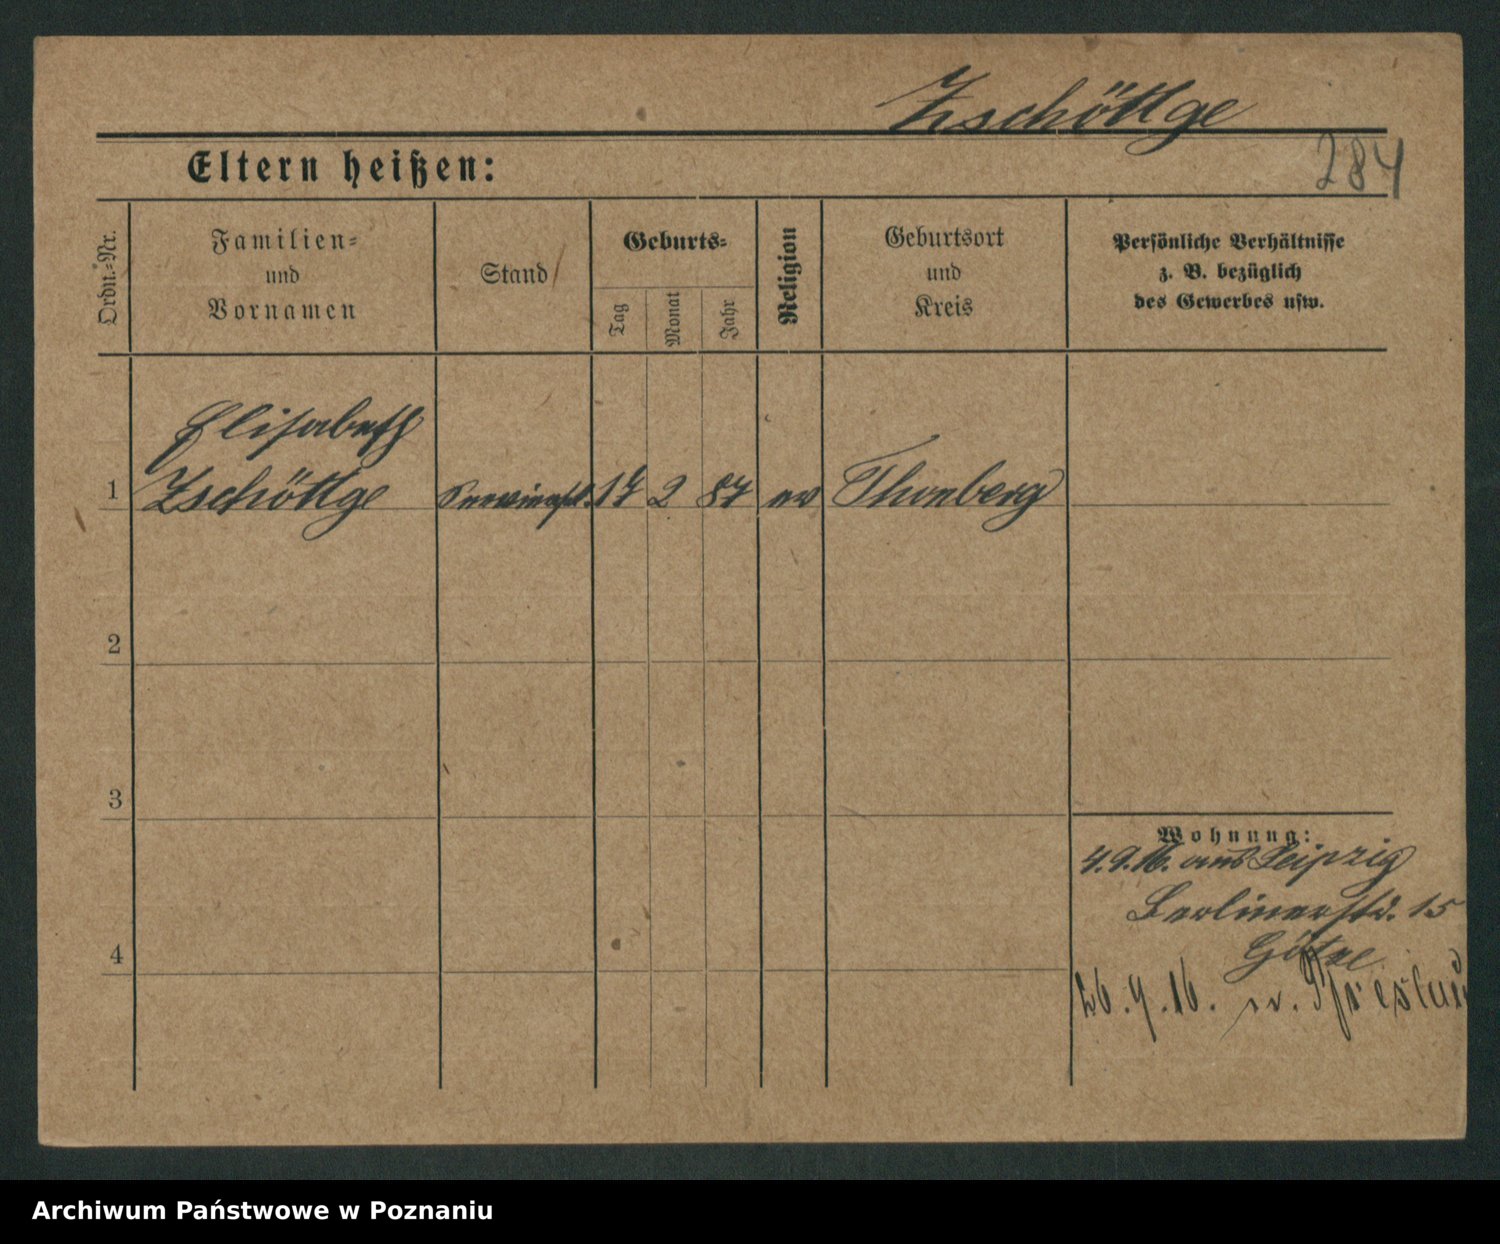 Zschöttge
284
Eltern heißen:
Ordn.-Nr.
Familien-
und
Vornamen
Stand
Geburts-
Tag
Monat
Jahr
Religion
Geburtsort
und
Kreis
Persönliche Verhältnisse
z. B. bezüglich
des Gewerbes usw.
Elisabeth
1 Zschöttge 17 2 87 ev Thonberg
2
3
4
Wohnung:
4.9.16. aus Leipzig
Berlinerstr. 15
Götze
26.9.16. n. Breslau
Archiwum Państwowe w Poznaniu